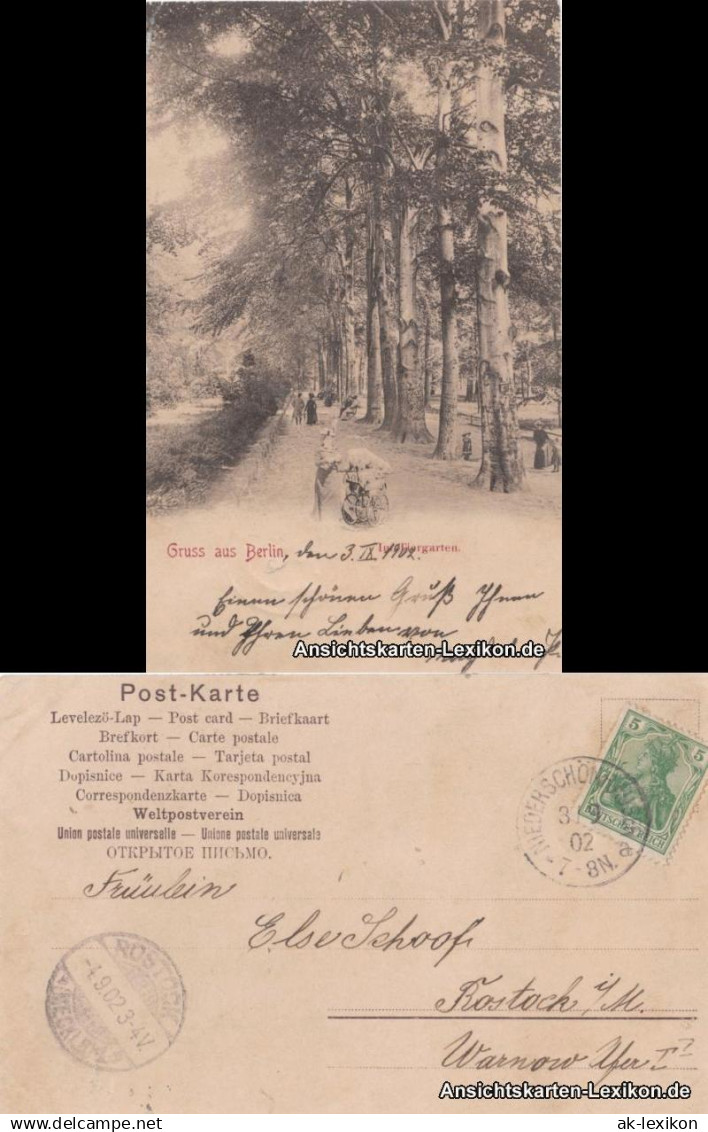 Gruss aus Berlin, den 3. IX 1902.
Im Tiergarten.
Einen schönen Gruß Ihnen
und Ihren Lieben von
Ansichtskarten-Lexikon.de
Post-Karte
Levelezö-Lap — Post card — Briefkaart
Brefkort — Carte postale
Cartolina postale — Tarjeta postal
Dopisnice — Karta Korespondencyjna
Correspondenzkarte — Dopisnica
Weltpostverein
Union postale universelle — Unione postale universale
ОТКРЫТОЕ ПИСЬМО.
5 5
DEUTSCHES REICH
NIEDERSCHÖN
3. 9
02
7-8N.
Fräulein
Else Schoof
ROSTOCK
-4.9.02.3-4V.
Rostock i/M.
Warnow Ufer
Ansichtskarten-Lexikon.de
ak-lexikon